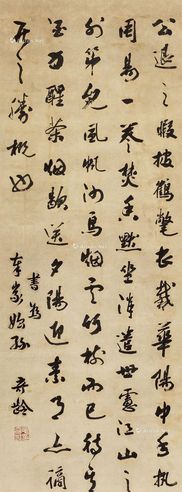 公退之暇披鶴氅衣戴華陽巾手執
周易一卷焚香默坐消遣世慮江山之
外第見風帆沙鳥烟雲竹樹而已待其
酒力醒茶烟歇送夕陽迎素月亦謫
居之勝概也
書為
奇齡